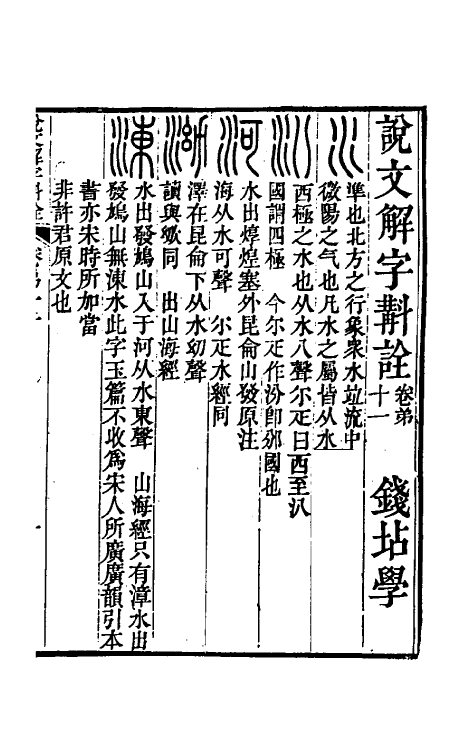 說文解字斠詮 卷弟十一 錢坫學
水 準也北方之行象衆水竝流中
微陽之气也凡水之屬皆从水
汃 西極之水也从水八聲尔疋曰西至汃
國謂四極 今尔疋作汾卽邠國也
河 水出焞煌塞外昆侖山發原注
海从水可聲 尔疋水經同
泑 澤在昆侖下从水幼聲
讀與䵣同 出山海經
涷 水出發鳩山入于河从水東聲 山海經只有漳水出
發鳩山無涷水此字玉篇不收爲宋人所廣廣韻引本
書亦宋時所加當
非許君原文也